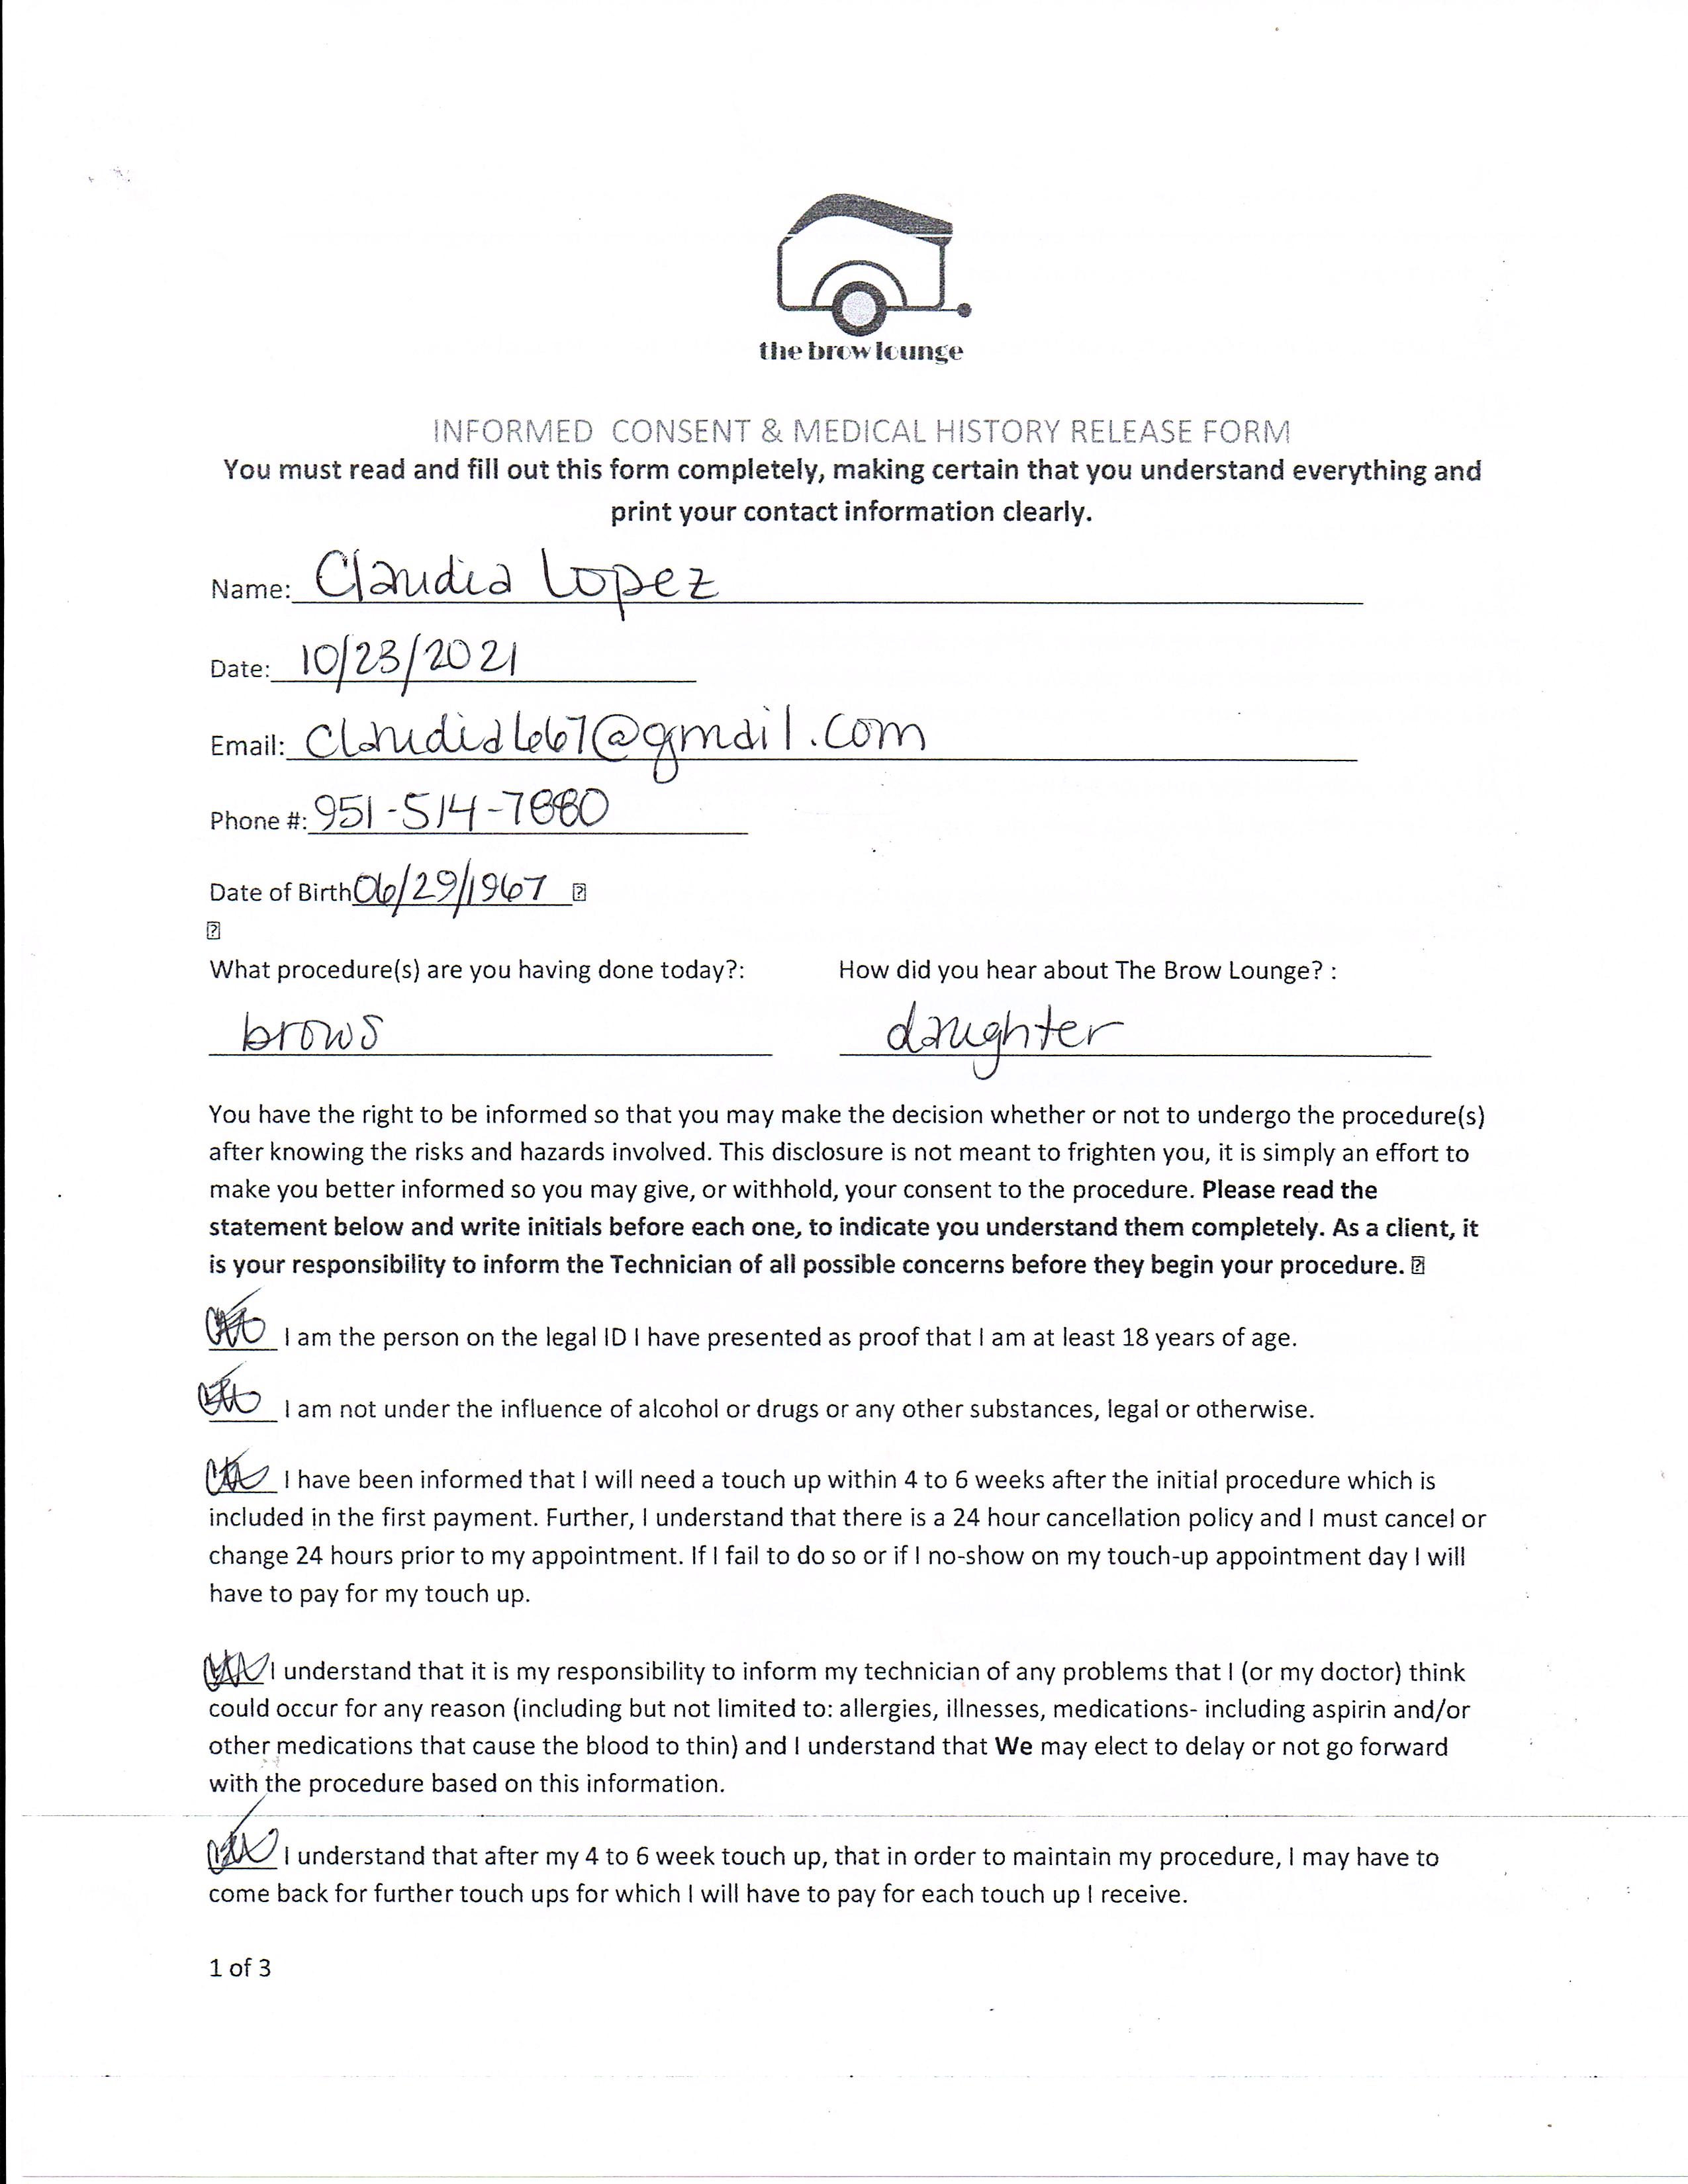 the brow lounge
INFORMED CONSENT & MEDICAL HISTORY RELEASE FORM
You must read and fill out this form completely, making certain that you understand everything and
print your contact information clearly.
Name: Claudia Lopez
Date: 10/23/2021
Email: @gmail.com
Phone #: 951-514-7880
Date of Birth 06/29/1967
What procedure(s) are you having done today?: How did you hear about The Brow Lounge? :
brows daughter
You have the right to be informed so that you may make the decision whether or not to undergo the procedure(s)
after knowing the risks and hazards involved. This disclosure is not meant to frighten you, it is simply an effort to
make you better informed so you may give, or withhold, your consent to the procedure. Please read the
statement below and write initials before each one, to indicate you understand them completely. As a client, it
is your responsibility to inform the Technician of all possible concerns before they begin your procedure.
I am the person on the legal ID I have presented as proof that I am at least 18 years of age.
I am not under the influence of alcohol or drugs or any other substances, legal or otherwise.
I have been informed that I will need a touch up within 4 to 6 weeks after the initial procedure which is
included in the first payment. Further, I understand that there is a 24 hour cancellation policy and I must cancel or
change 24 hours prior to my appointment. If I fail to do so or if I no-show on my touch-up appointment day I will
have to pay for my touch up.
I understand that it is my responsibility to inform my technician of any problems that I (or my doctor) think
could occur for any reason (including but not limited to: allergies, illnesses, medications- including aspirin and/or
other medications that cause the blood to thin) and I understand that We may elect to delay or not go forward
with the procedure based on this information.
I understand that after my 4 to 6 week touch up, that in order to maintain my procedure, I may have to
come back for further touch ups for which I will have to pay for each touch up I receive.
1 of 3